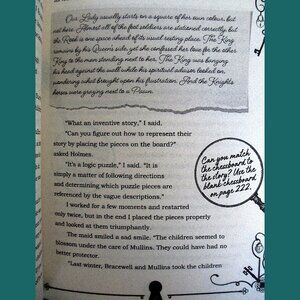 Our Lady usually starts on a square of her own colour, but
not here. Almost all of the foot soldiers are stationed correctly, but
the Rook is one space ahead of its usual resting place. The King
remains by his Queen's side, yet she confessed her love for the other
King to the man standing next to her. The King was banging
his head against the wall while his spiritual adviser looked on,
wondering what brought upon his frustration. And the Knight's
horses were graying next to a Pawn.
"What an inventive story," I said.
"Can you figure out how to represent their
story by placing the pieces on the board?"
asked Holmes.
"It's a logic puzzle," I said. "It is
simply a matter of following directions
and determining which puzzle pieces are
referenced by the vague descriptions."
I worked for a few moments and restarted
only twice, but in the end I placed the pieces properly
and looked at them triumphantly.
The maid smiled a sad smile. "The children seemed to
blossom under the care of Mullins. They could have had no
better protector.
"Last winter, Bracewell and Mullins took the children
Can you match
the chessboard to
the story? Use the
blank chessboard
on page 222.